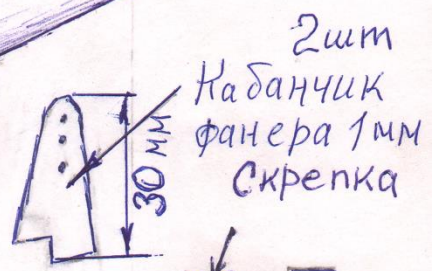 2шт
Кабанчик
фанера 1мм
Скрепка
30 мм